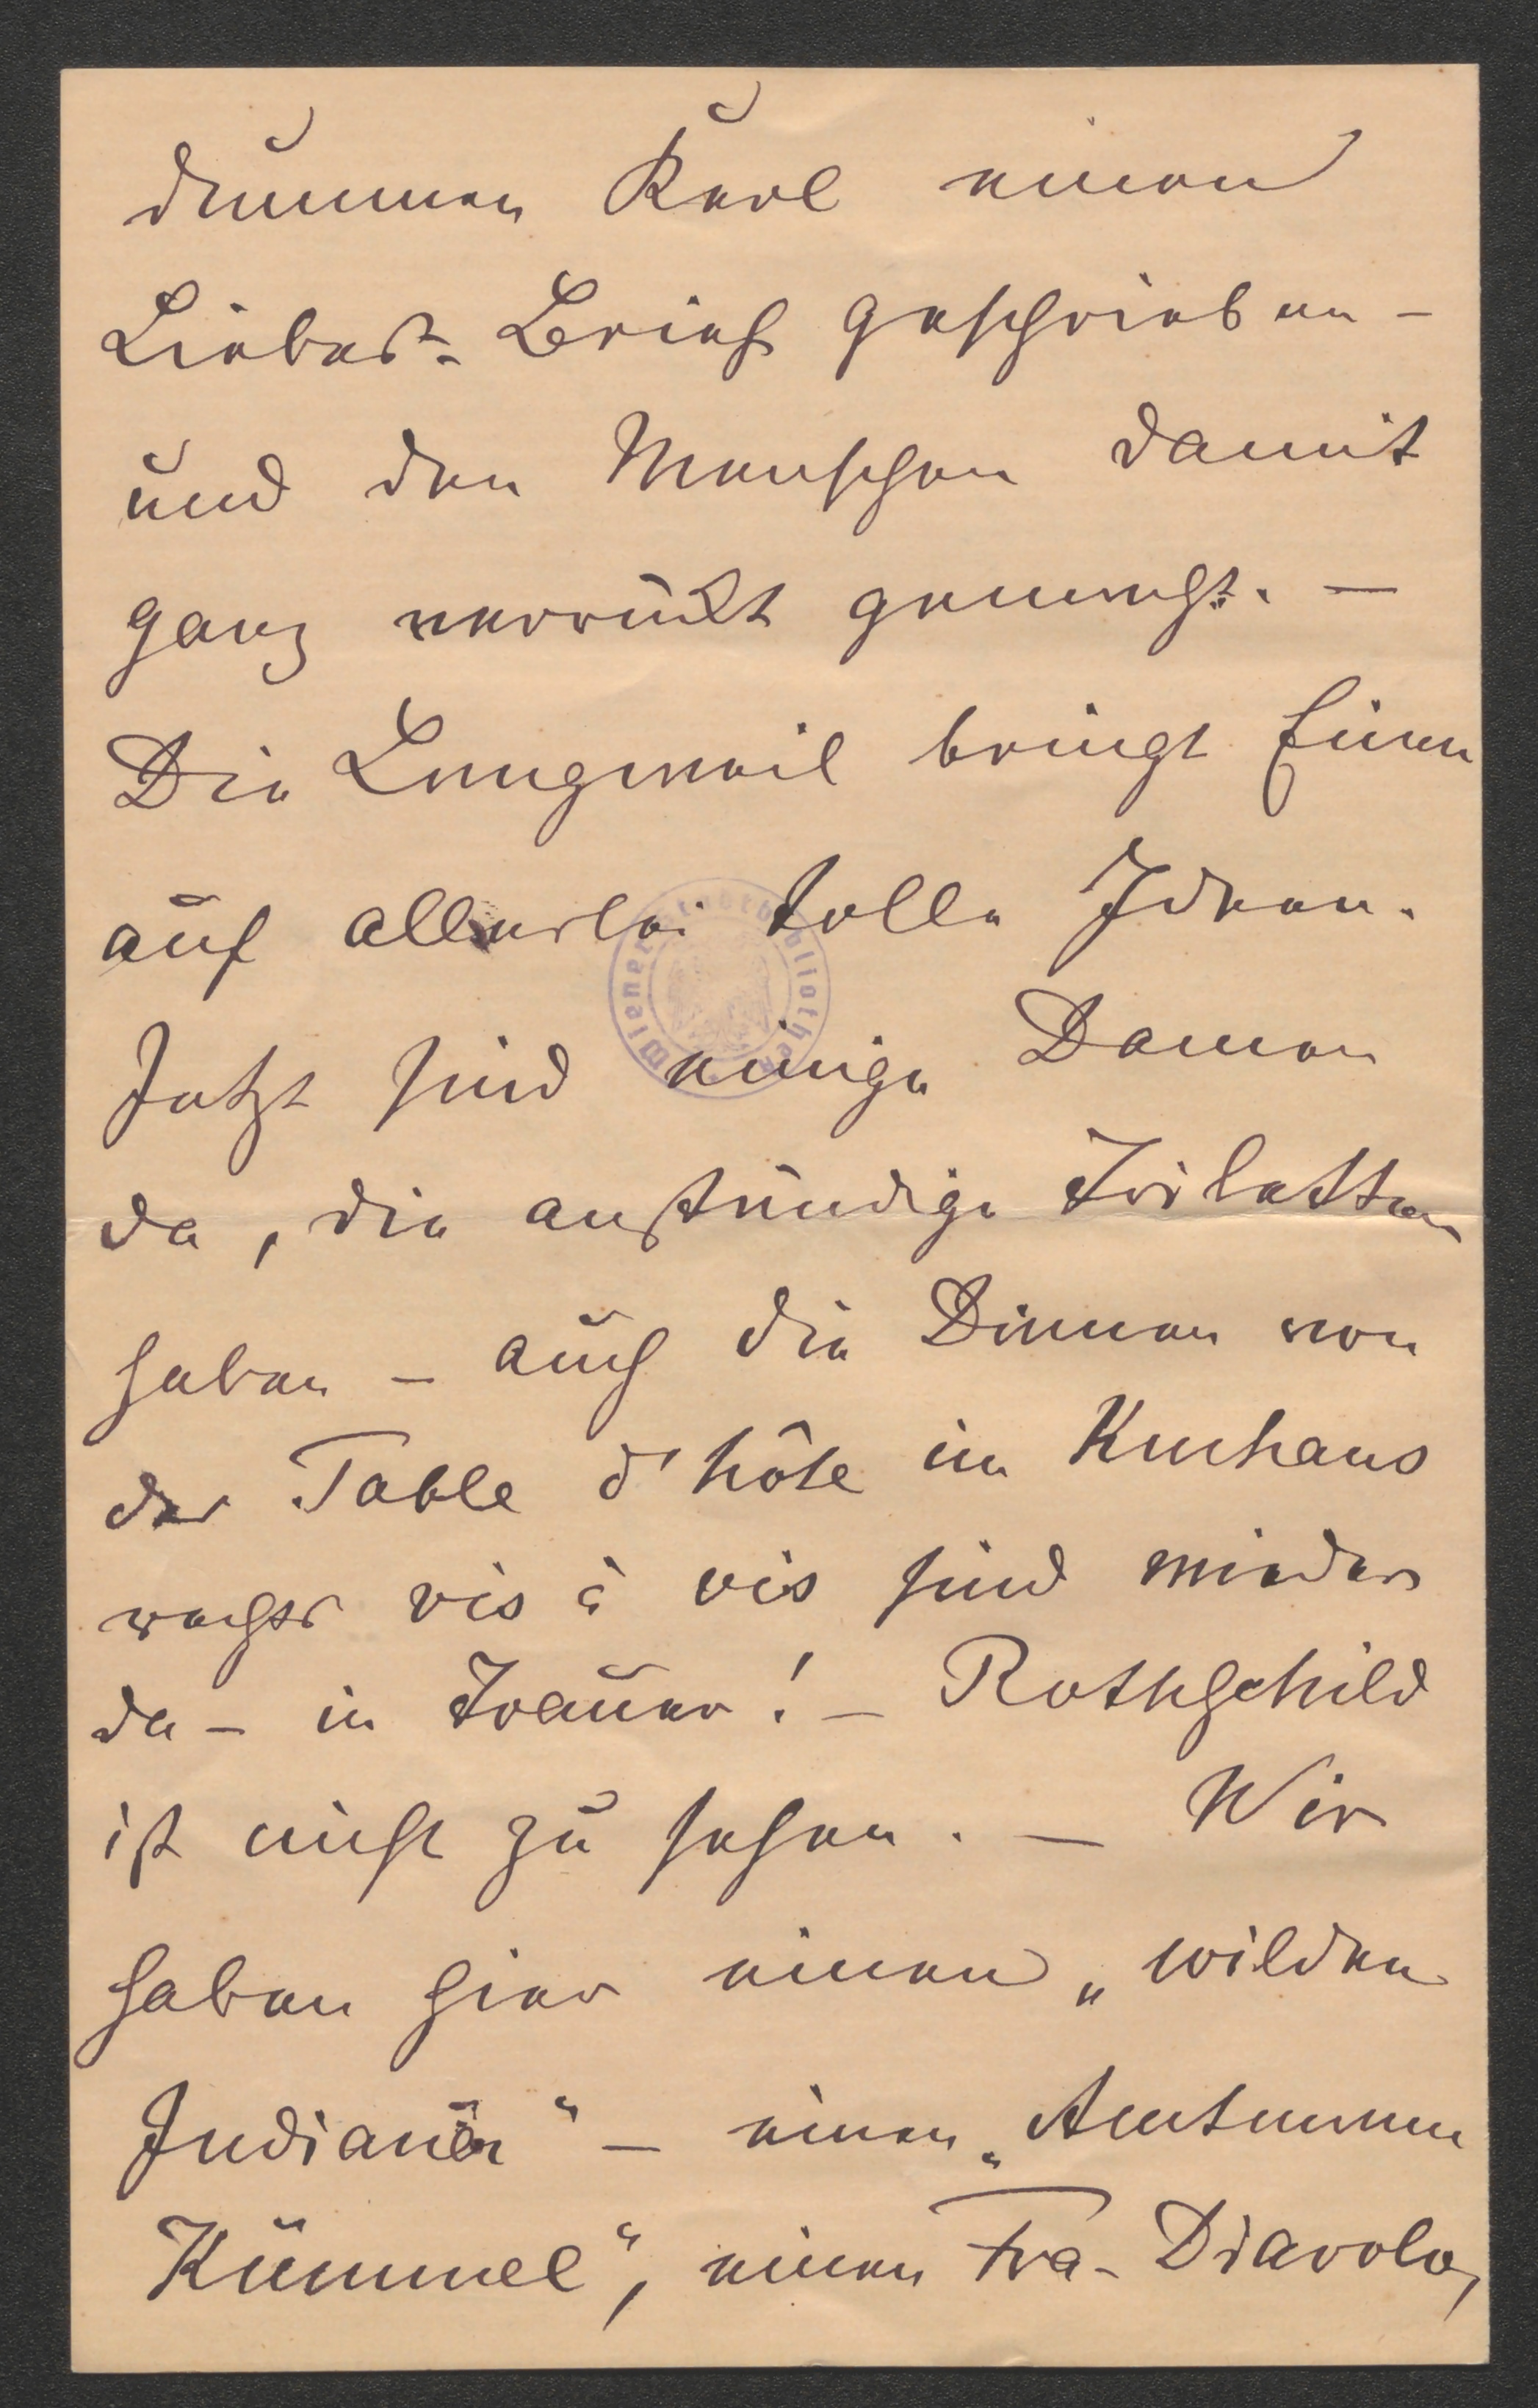 dummen Kerl einen
Liebes-Brief geschrieben –
und den Menschen damit
ganz verrückt gemacht. –
Die Langweil bringt Einen
auf allerlei tolle Ideen.
Jetzt sind einige Damen
da, die anständige Toiletten
haben – auch die Dinnen von
der Table d'hôte im Kurhaus
rechts vis à vis sind wieder
da – in Trauer! – Rothschild
ist nicht zu sehen. – Wir
haben hier einen „wilden
Indianer“ – einen „Amtmann
Kümmel“, einen Fra-Diavolo,
Wiener Stadtbibliothek